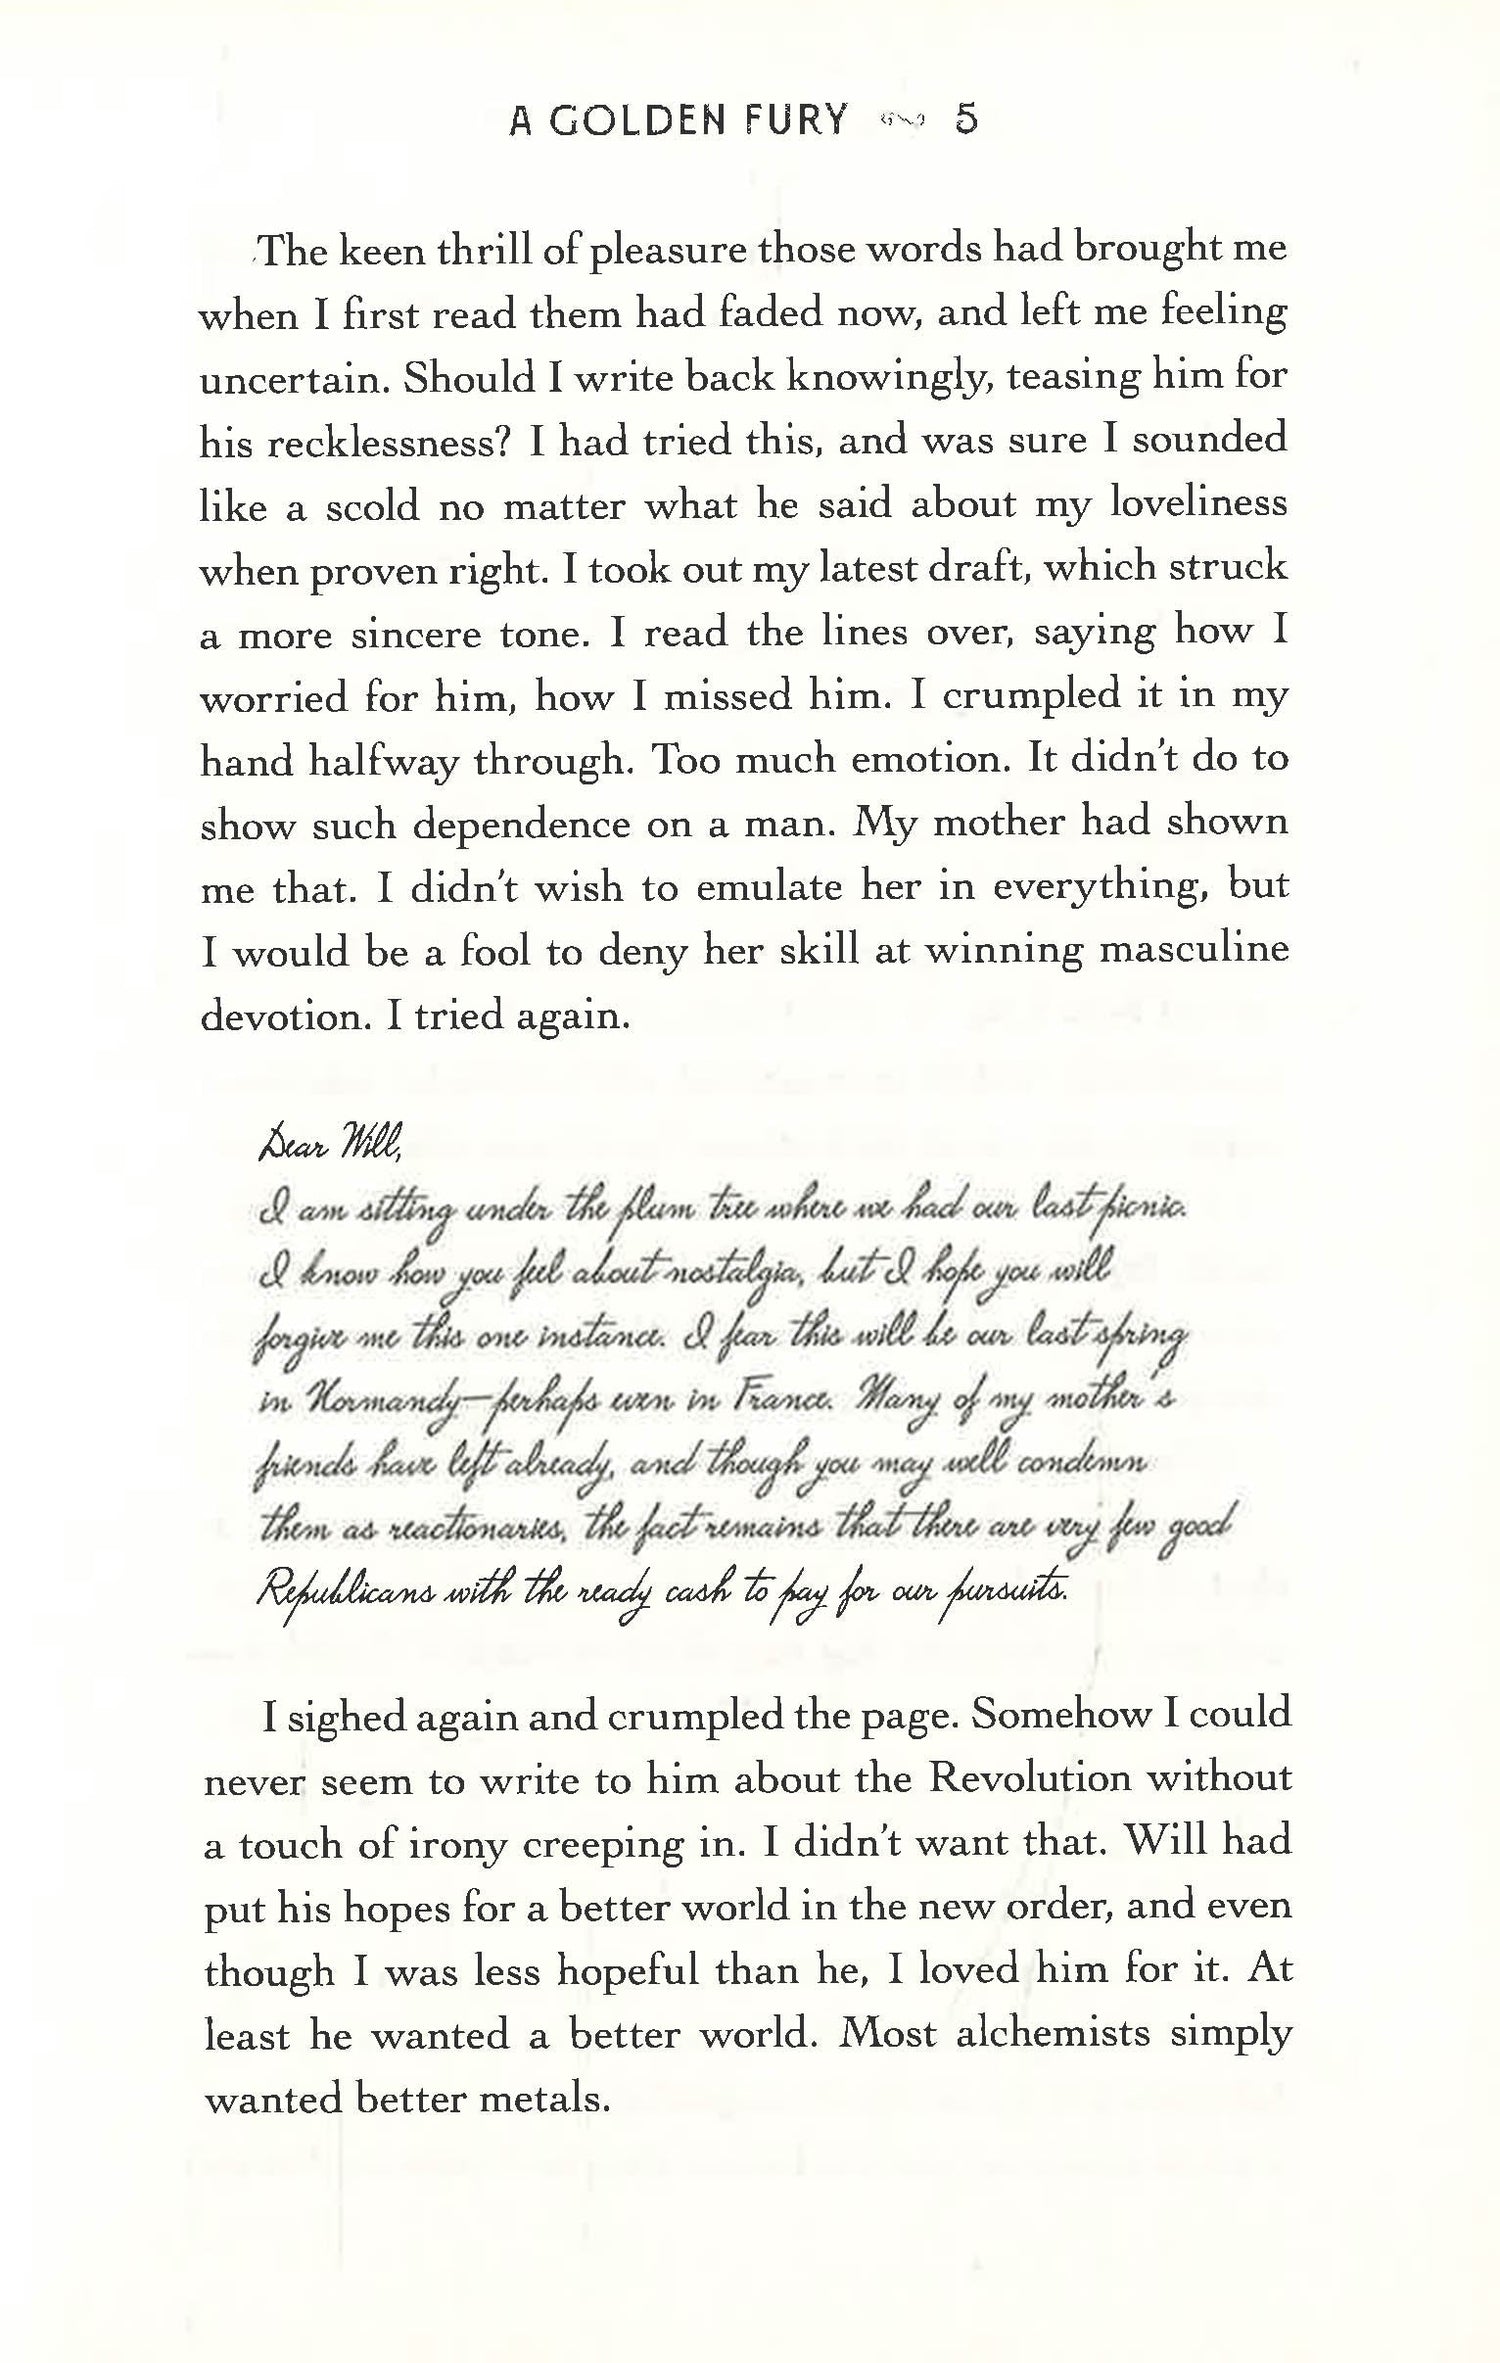 A GOLDEN FURY 5
The keen thrill of pleasure those words had brought me
when I first read them had faded now, and left me feeling
uncertain. Should I write back knowingly, teasing him for
his recklessness? I had tried this, and was sure I sounded
like a scold no matter what he said about my loveliness
when proven right. I took out my latest draft, which struck
a more sincere tone. I read the lines over, saying how I
worried for him, how I missed him. I crumpled it in my
hand halfway through. Too much emotion. It didn't do to
show such dependence on a man. My mother had shown
me that. I didn't wish to emulate her in everything, but
I would be a fool to deny her skill at winning masculine
devotion. I tried again.
Dear Will,
I am sitting under the plum tree where we had our last picnic.
I know how you feel about nostalgia, but I hope you will
forgive me this one instance. I fear this will be our last spring
in Normandy—perhaps even in France. Many of my mother's
friends have left already, and though you may well condemn
them as reactionaries, the fact remains that there are very few good
Republicans with the ready cash to pay for our pursuits.
I sighed again and crumpled the page. Somehow I could
never seem to write to him about the Revolution without
a touch of irony creeping in. I didn't want that. Will had
put his hopes for a better world in the new order, and even
though I was less hopeful than he, I loved him for it. At
least he wanted a better world. Most alchemists simply
wanted better metals.